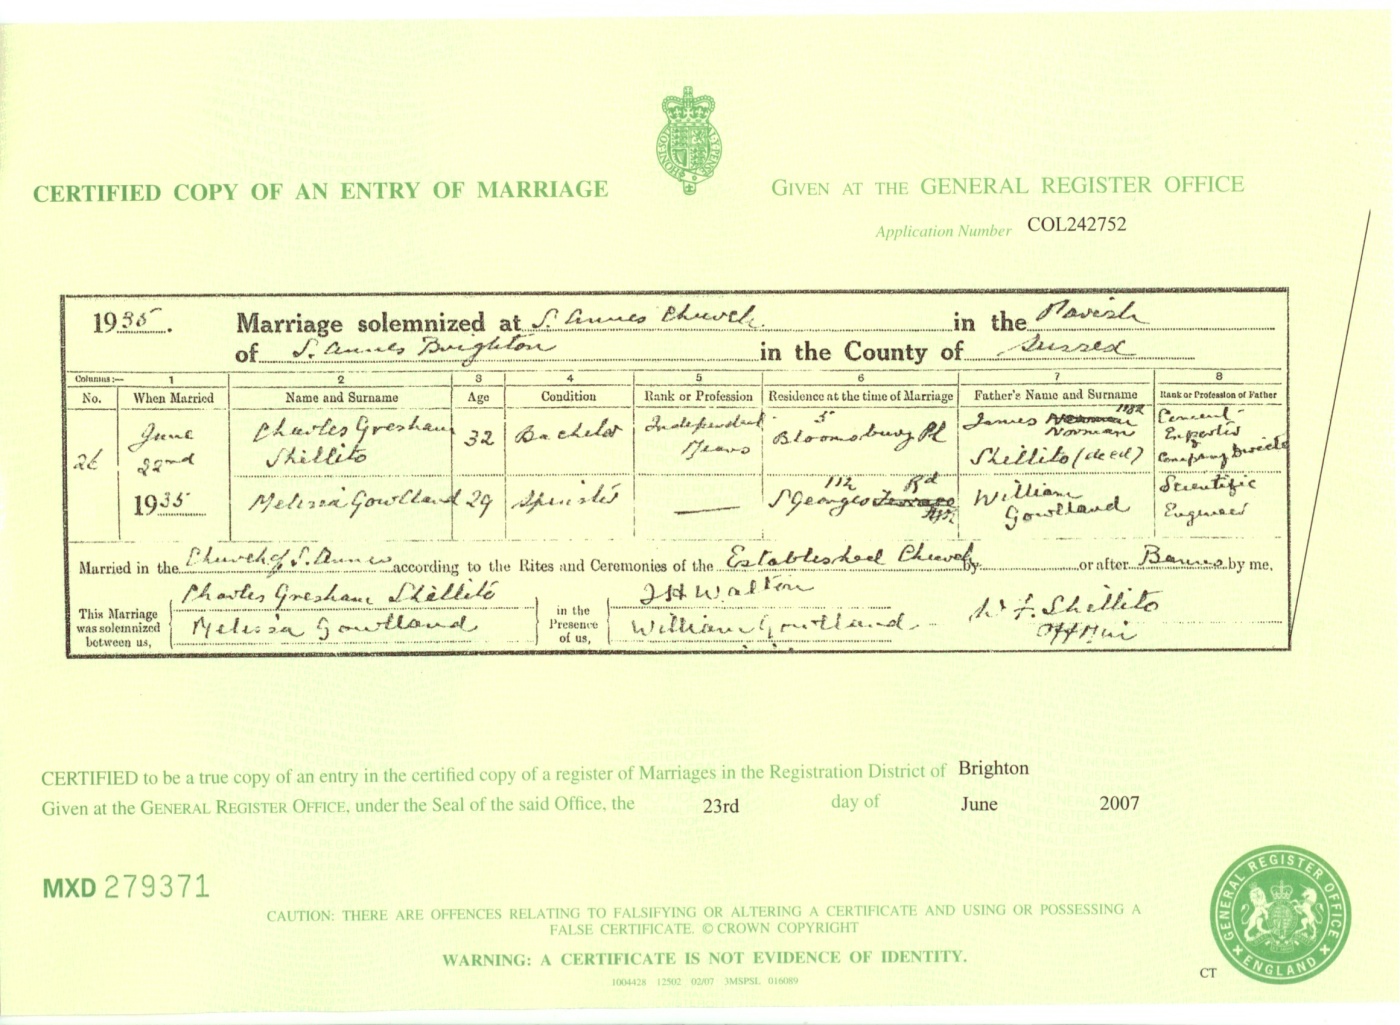 CERTIFIED COPY OF AN ENTRY OF MARRIAGE
GIVEN AT THE GENERAL REGISTER OFFICE
Application Number COL242752
1935. Marriage solemnized at S. Annes Church in the Parish
of S. Annes Brighton in the County of Sussex
Columns:— 1 2 3 4 5 6 7 8
No. When Married Name and Surname Age Condition Rank or Profession Residence at the time of Marriage Father's Name and Surname Rank or Profession of Father
26 June 22nd 1935
Charles Gresham Shillito 32 Bachelor Independent Means 5 Bloomsbury Pl James Norman Norman Shillito (decd) Cement Company Director
Melissa Gowlland 29 Spinster — S Georges Terrace Rd William Gowlland Scientific Engineer
Married in the Church of S. Annes according to the Rites and Ceremonies of the Established Church by or after Banns by me,
This Marriage was solemnized between us,
Charles Gresham Shillito
Melissa Gowlland
in the Presence of us,
J H Walton
William Gowlland
W. F. Shillito
CERTIFIED to be a true copy of an entry in the certified copy of a register of Marriages in the Registration District of Brighton
Given at the GENERAL REGISTER OFFICE, under the Seal of the said Office, the 23rd day of June 2007
MXD 279371
CAUTION: THERE ARE OFFENCES RELATING TO FALSIFYING OR ALTERING A CERTIFICATE AND USING OR POSSESSING A
FALSE CERTIFICATE. © CROWN COPYRIGHT
WARNING: A CERTIFICATE IS NOT EVIDENCE OF IDENTITY.
1004428 12502 02/07 3MSPSL 016089
CT
GENERAL REGISTER OFFICE
ENGLAND